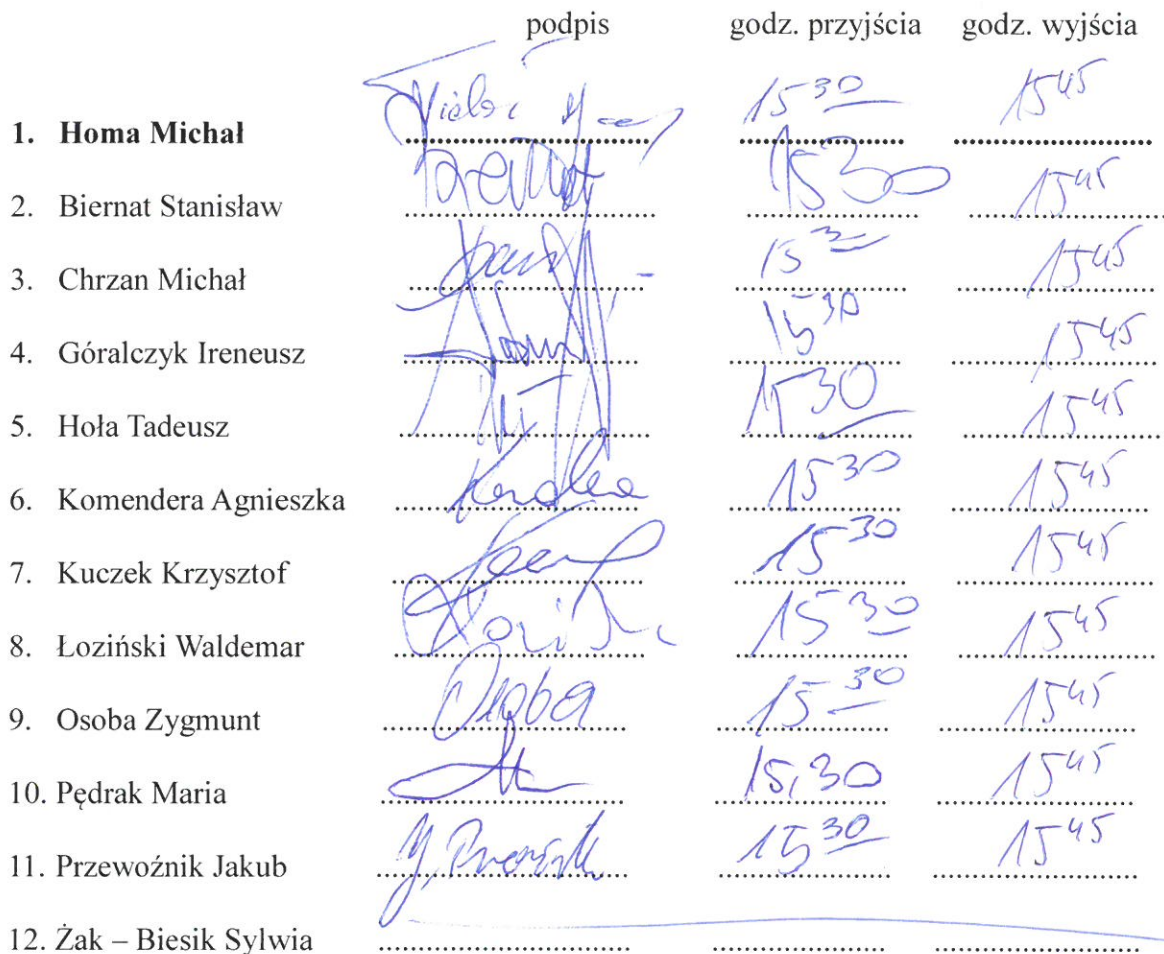 podpis godz. przyjścia godz. wyjścia
1. Homa Michał 15 30 15 45
2. Biernat Stanisław 15 30 15 45
3. Chrzan Michał 15 30 15 45
4. Góralczyk Ireneusz 15 30 15 45
5. Hoła Tadeusz 15 30 15 45
6. Komendera Agnieszka 15 30 15 45
7. Kuczek Krzysztof 15 30 15 45
8. Łoziński Waldemar 15 30 15 45
9. Osoba Zygmunt Osoba 15 30 15 45
10. Pędrak Maria 15,30 15 45
11. Przewoźnik Jakub 15 30 15 45
12. Żak – Biesik Sylwia